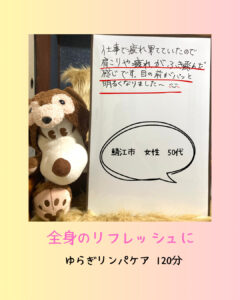 仕事で疲れ果てていたので
肩こりや疲れがふき飛んだ
感じです。目の前がパッと
明るくなりました〜
鯖江市 女性 50代
全身のリフレッシュに
ゆらぎリンパケア 120分